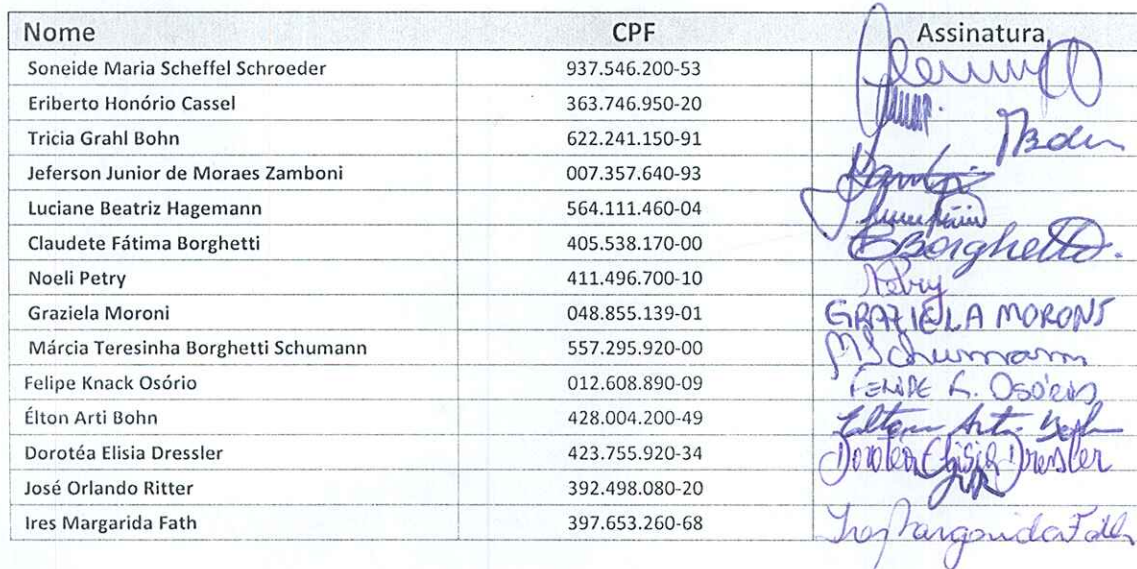 Nome CPF Assinatura
Soneide Maria Scheffel Schroeder 937.546.200-53
Eriberto Honório Cassel 363.746.950-20
Tricia Grahl Bohn 622.241.150-91
Jeferson Junior de Moraes Zamboni 007.357.640-93
Luciane Beatriz Hagemann 564.111.460-04
Claudete Fátima Borghetti 405.538.170-00 Borghetti.
Noeli Petry 411.496.700-10 Petry
Graziela Moroni 048.855.139-01 GRAZIELA MORONI
Márcia Teresinha Borghetti Schumann 557.295.920-00 MSchumann
Felipe Knack Osório 012.608.890-09 FELIPE K. OSÓRIO
Élton Arti Bohn 428.004.200-49 Élton Arti Bohn
Dorotéa Elisia Dressler 423.755.920-34 Dorotéa Elisia Dressler
José Orlando Ritter 392.498.080-20
Ires Margarida Fath 397.653.260-68 Ires Margarida Fath